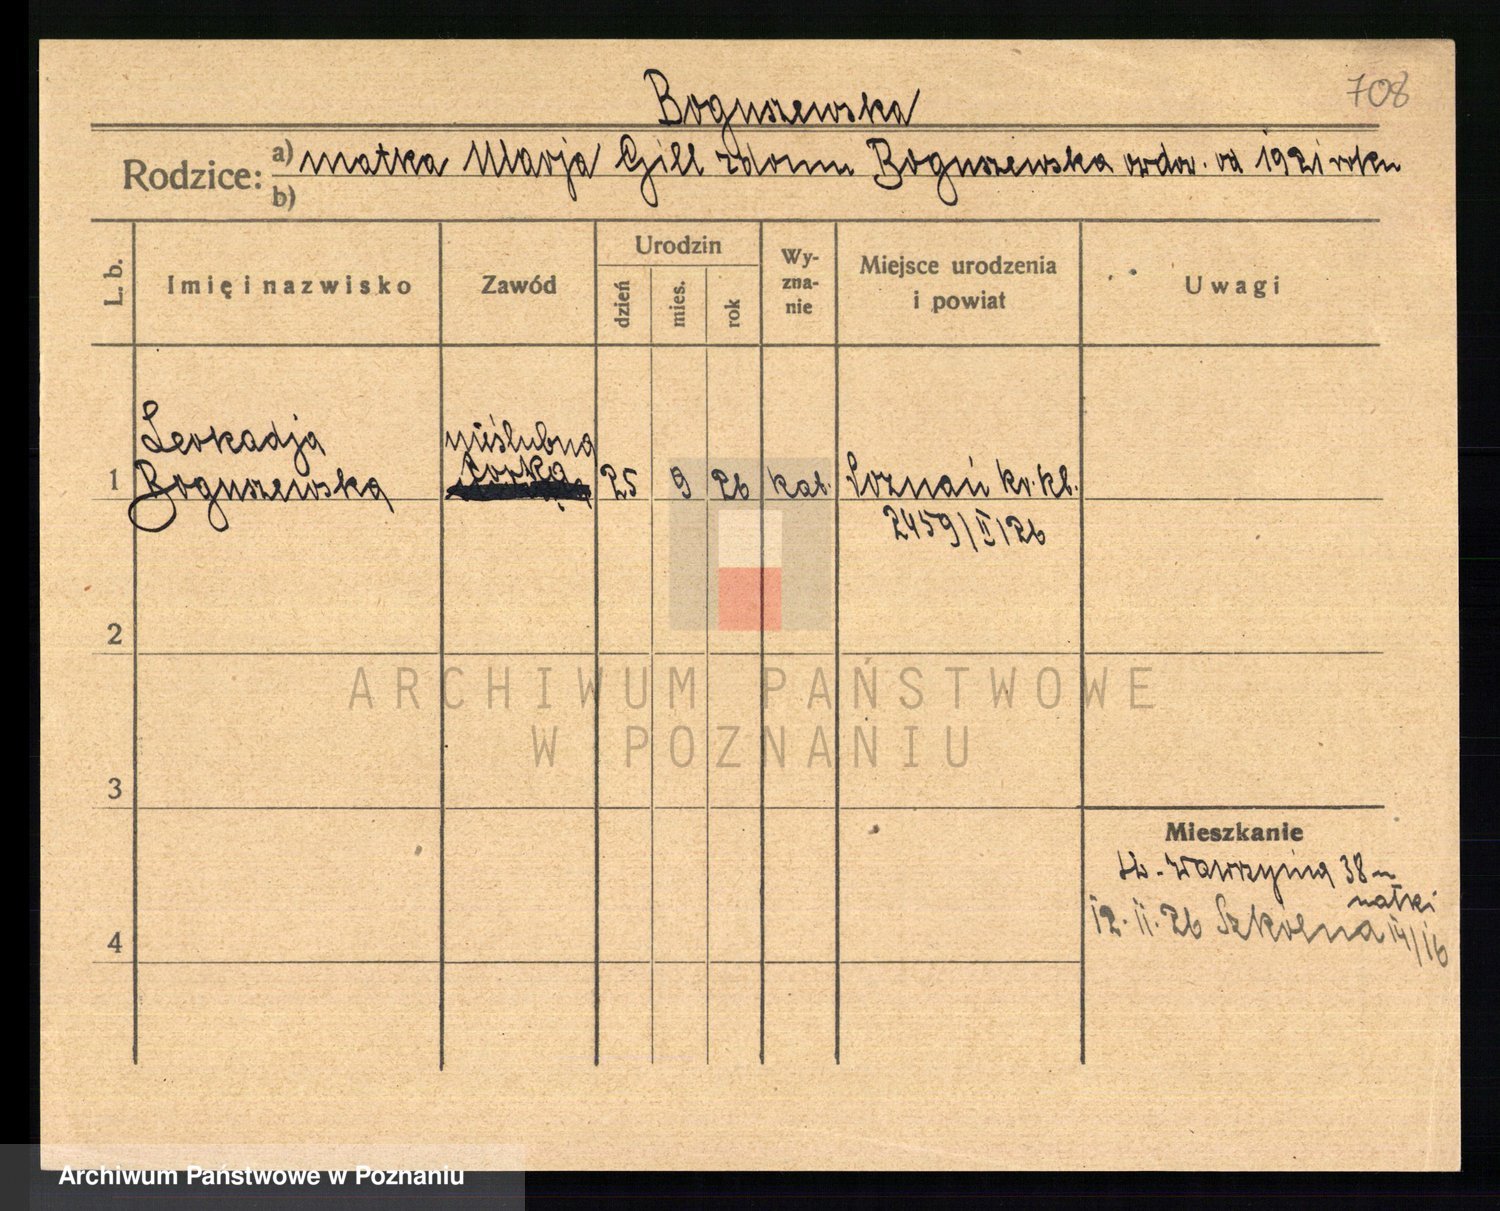 708
Boguszewska
Rodzice: a) matka Marja Gill zdomu Boguszewska wdow. od 1921 roku
b)
L. b. Imię i nazwisko Zawód Urodzin dzień mies. rok Wyznanie Miejsce urodzenia i powiat Uwagi
Leokadja nieślubna
1 Boguszewska córka 25 9 26 kat. Poznań kr. kl.
2459/II/26
2
ARCHIWUM PAŃSTWOWE
W POZNANIU
3
Mieszkanie
św. Wawrzyńca 38 u
matki
12. 11. 26 Szkolna
4
Archiwum Państwowe w Poznaniu